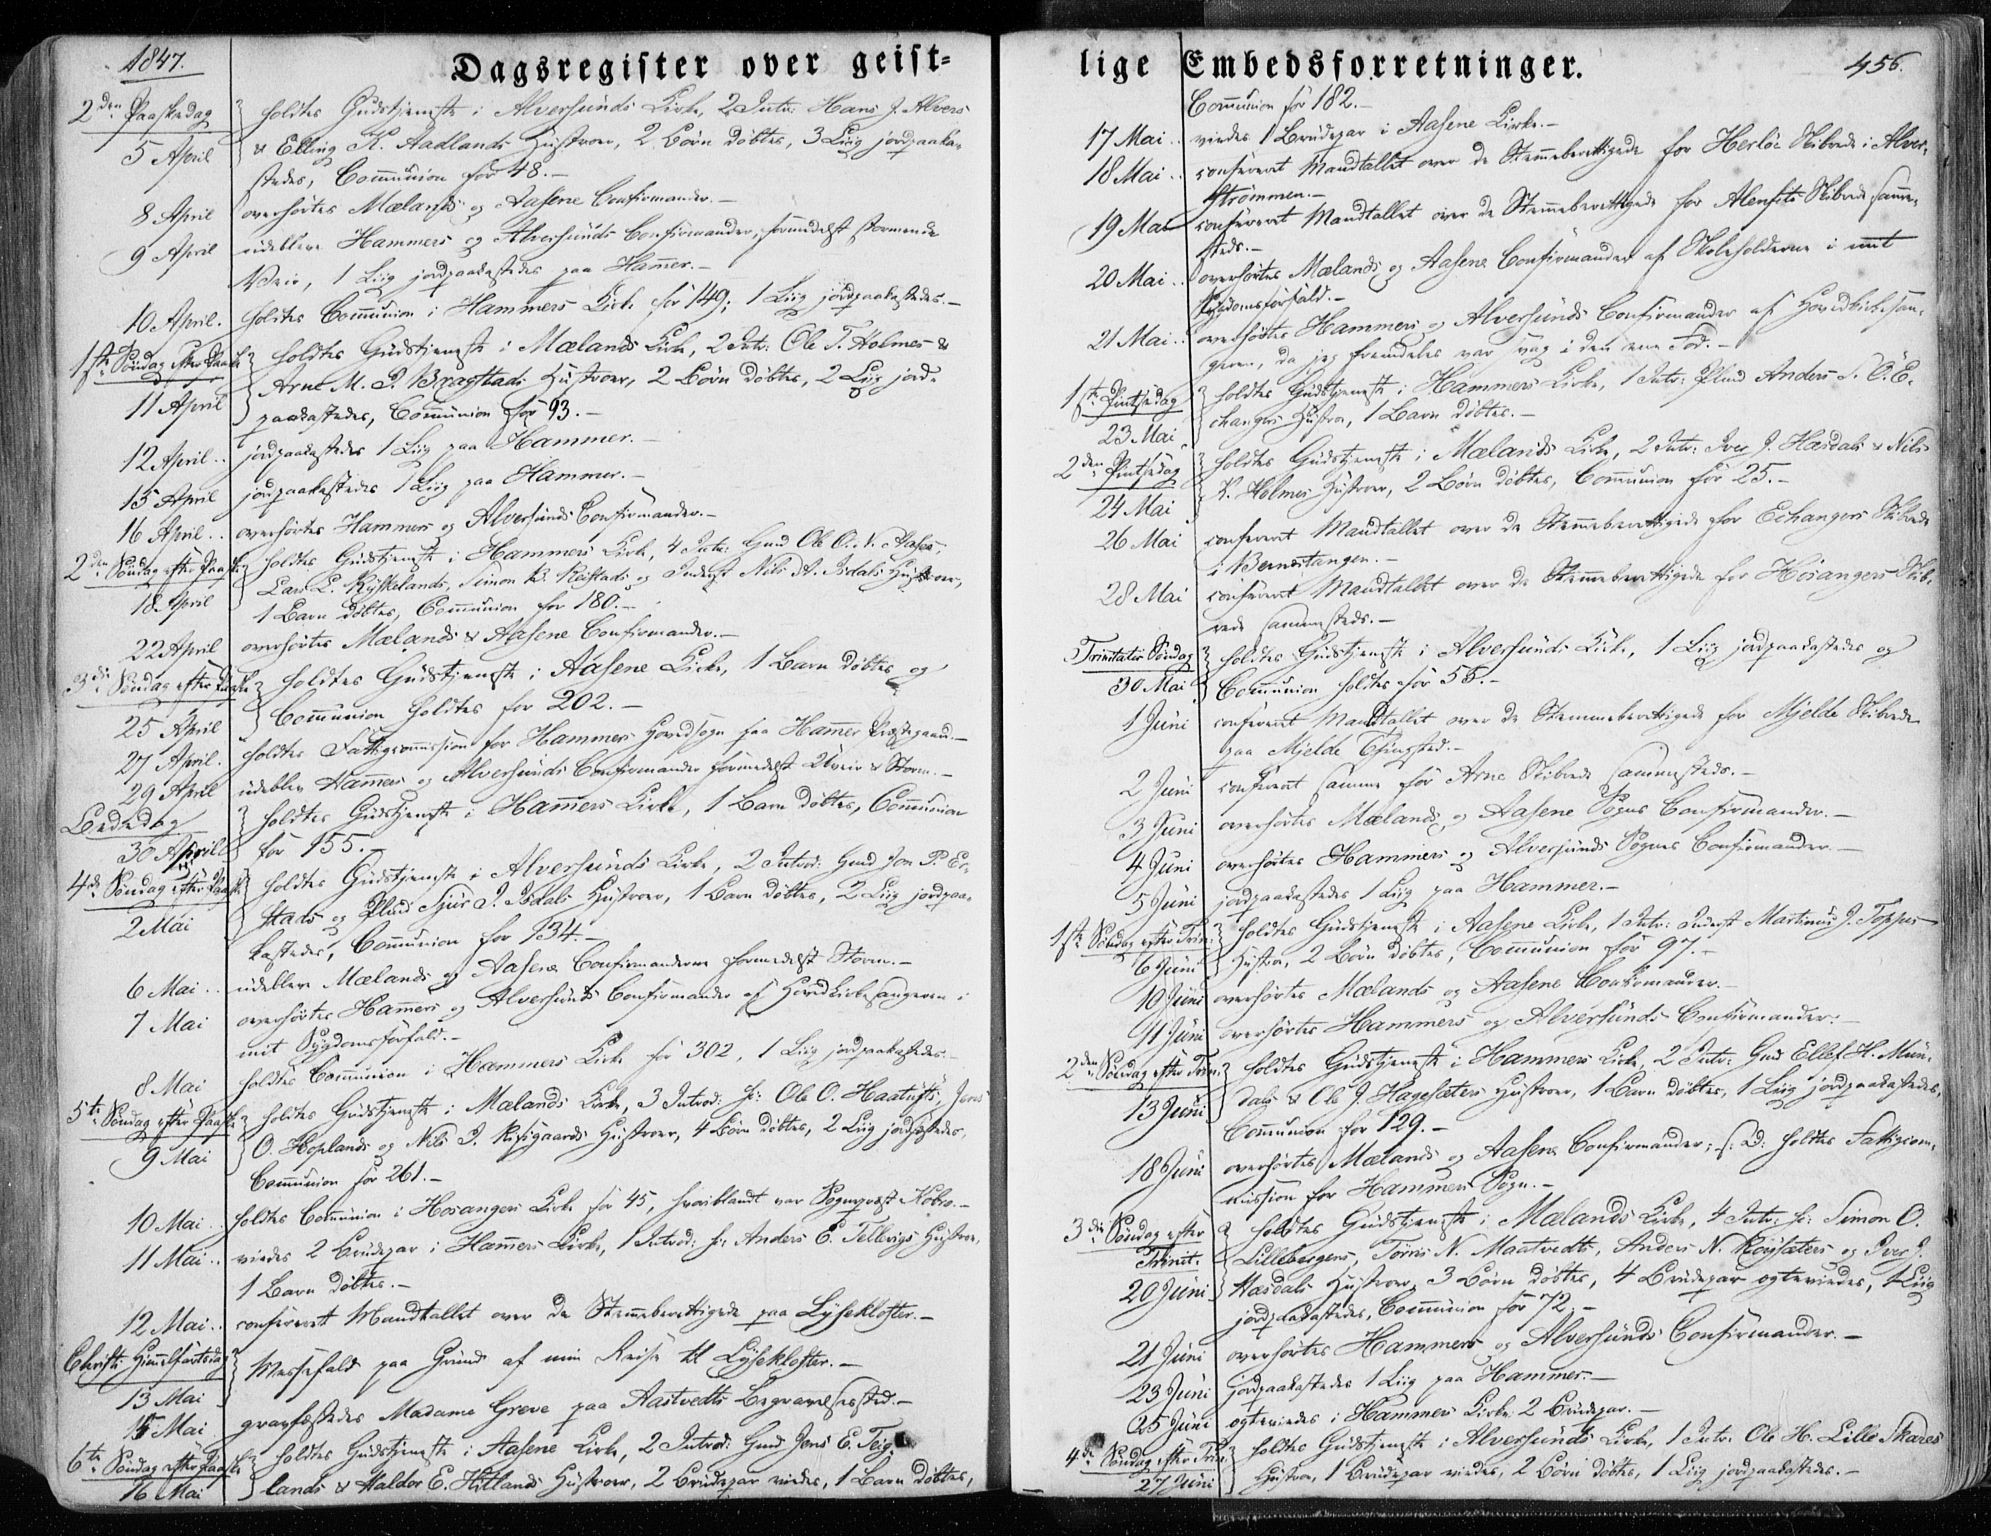 1847.
Dagsregister over geist-
2den Paaskedag holdtes Gudstjeneste i Alversunds Kirke, 2 Intr: Hans J. Alvers
5 April & Elling K. Aadlands Hustruer, 2 Børn døbtes, 3 Liig jordpaaka-
stedes, Communion for 48.-
8 April overhørtes Mælands og Aasene Confirmander.-
9 April udebleve Hammers og Alversunds Confirmander, formedelst stormende
Veir, 1 Liig jordpaakastedes paa Hamer.-
10 April. holdtes Communion i Hammers Kirke for 149; 1 Liig jordpaakastedes.-
1ste Søndag efter Paaske holdtes Gudstjeneste i Mælands Kirke, 2 Intr: Ole T. Holmes &
11 April Arne M. P. Bragstads Hustruer, 2 Børn døbtes, 2 Liig jord-
paakastedes, Communion for 93.-
12 April.. jordpaakastedes 1 Liig paa Hammer.-
15 April jordpaakastedes 1 Liig paa Hammer.-
16 April.. overhørtes Hammers og Alversunds Confirmander.-
2den Søndag efter Paaske holdtes Gudstjeneste i Hammers Kirke, 4 Intr: Gmd Ole O. N. Aases,
18 April Lars L. Kyskelands, Simon K. Kustads og Inderst Nils A. Isdals Hustruer,
1 Barn døbtes, Communion for 180.-
22 April overhørtes Mælands & Aasene Confirmander.-
3die Søndag efter Paaske holdtes Gudstjeneste i Aasene Kirke, 1 Barn døbtes og
25 April Communion holdtes for 202.-
27 April. holdtes Fattigcommission for Hammers Hovedsogn paa Hamer Præstegaard.-
29 April udebleve Hammers og Alversunds Confirmander formedelst Uveir & Storm.-
Bededag holdtes Gudstjeneste i Hamers Kirke, 1 Barn døbtes, Communion
30 April for 155.-
4de Søndag efter Paaske holdtes Gudstjeneste i Alversunds Kirke, 2 Introd: Gmd Jon P. Er-
2 Mai stads og Plmd Sjur I. Isdals Hustruer, 1 Barn døbtes, 2 Liig jordpaa-
kastedes, Communion for 134.-
6 Mai.. udebleve Mælands og Aasene Confirmanderne formedelst Storm.-
7 Mai overhørtes Hamers og Alversunds Confirmander af Hovedkirkesangeren i
mit Sygdomsforfald.-
8 Mai holdtes Communion i Hammers Kirke for 302, 1 Liig jordpaakastedes.-
5te Søndag efter Paaske holdtes Gudstjeneste i Mælands Kirke, 3 Introd: h: Ole O. Haatufts, Jens
9 Mai O. Hoplands og Nils I. Risegaards Hustruer, 4 Børn døbtes, 2 Liig jordp:kastedes,
Communion for 261.-
10 Mai.. holdtes Communion i Hosangers Kirke for 45, hvoriblandt var Sognepræst Kobro.-
11 Mai.. viedes 2 Brudepar i Hamers Kirke, 1 Introd: h: Anders E. Tellevigs Hustrue,
1 Barn døbtes.-
12 Mai.. confereret Mandtallet over de Stemmeberettigede paa Lysekloster.-
Christi Himmelfartsdag Messefald paa Grund af min Reise til Lysekloster.-
13 Mai
15 Mai gravfæstedes Madame Greve paa Aastvedts Begravelsessted.-
6te Søndag efter Paaske holdtes Gudstjeneste i Aasene Kirke, 2 Introd: Gmd Jens E. Teig-
16 Mai lands & Haldor E. Hitlands Hustruer, 2 Brudepar viedes, 1 Barn døbtes,
lige Embedsforretninger. 456.
Communion for 182.-
17 Mai.. viedes 1 Brudepar i Aasene Kirke.-
18 Mai.. confereret Mandtallet over de Stemmeberettigede for Herløe Skibrede i Alver-
strømmen.-
19 Mai confereret Mandtallet over de Stemmeberettigede for Alenfits Skibrede samme-
steds.-
20 Mai.. overhørtes Mælands og Aasene Confirmander af Skoleholderne i mit
Sygdomsforfald.-
21 Mai.. overhørtes Hammers og Alversunds Confirmander af Hovedkirkesan-
geren, da jeg fremdeles var svag i den ene Fod.-
1ste Pintsedag holdtes Gudstjeneste i Hammers Kirke, 1 Intr: Plmd Anders S. O. E-
23 Mai changers Hustrue, 1 Barn døbtes.-
2den Pintsedag holdtes Gudstjeneste i Mælands Kirke, 2 Intr: Iver J. Hæsdals & Nils
24 Mai K. Holmes Hustruer, 2 Børn døbtes, Communion for 25.-
26 Mai confereret Mandtallet over de Stemmeberettigede for Echangers Skibrede
i Bernestangen.-
28 Mai confereret Mandtallet over de Stemmeberettigede for Hosangers Skib-
rede sammesteds.-
Trinitatis Søndag holdtes Gudstjeneste i Alversunds Kirke, 1 Liig jordpaakastedes og
30 Mai Communion holdtes for 56.-
1 Juni confereret Mandtallet over de Stemmeberettigede for Mjelde Skibrede
paa Mjelde Thingsted.-
2 Juni confereret samme for Arne Skibrede sammesteds.-
3 Juni overhørtes Mælands og Aasene Sognes Confirmander.-
4 Juni overhørtes Hammers og Alversunds Sognes Confirmander.-
5 Juni jordpaakastedes 1 Liig paa Hammer.-
1ste Søndag efter Trin: holdtes Gudstjeneste i Aasene Kirke, 1 Intr: Inderst Martinus J. Toppes
6 Juni Hustrue, 2 Børn døbtes, Communion for 97.-
10 Juni overhørtes Mælands og Aasene Confirmander.-
11 Juni overhørtes Hammers og Alversunds Confirmander.-
2den Søndag efter Trin: holdtes Gudstjeneste i Hammers Kirke, 2 Intr: Gmd Ellef H. Mun-
13 Juni dals & Ole J. Hagesæters Hustruer, 1 Barn døbtes, 1 Liig jordpaakastedes,
Communion for 129.-
18 Juni overhørtes Mælands og Aasene Confirmander; s: D: holdtes Fattigcom-
mission for Hammers Sogn.-
3die Søndag efter holdtes Gudstjeneste i Mælands Kirke, 4 Intr: h: Simon O.
Trinit. Lillebergens, Tørris N. Maatvedts, Anders N. Røysæters og Iver J.
20 Juni Hæsdals Hustruer, 3 Børn døbtes, 4 Brudepar ægteviedes, 1 Liig
jordpaakastedes, Communion for 72.-
21 Juni overhørtes Hammers og Alversunds Confirmander.-
23 Juni jordpaakastedes 1 Liig paa Hammer.-
25 Juni ægteviedes i Hammers Kirke 2 Brudepar.-
4de Søndag efter Trin: holdtes Gudstjeneste i Alversunds Kirke, 1 Intr: Ole H. Lille Skares
27 Juni Hustrue, 1 Brudepar viedes, 2 Børn døbtes, 1 Liig jordpaakastedes.-